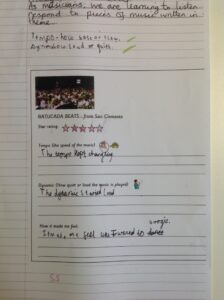 As musicians, we are learning to listen
respond to pieces of music written in
theme.
Tempo - how fast or slow.
Dynamic how loud or quiet.
BATUCADA BEATS – from San Clemente
Star rating:
Tempo (the speed of the music)
The tempo kept changing
Dynamic (how quiet or loud the music is played)
The dynamic is loud
How it made me feel:
It made me feel like I wanted to dance